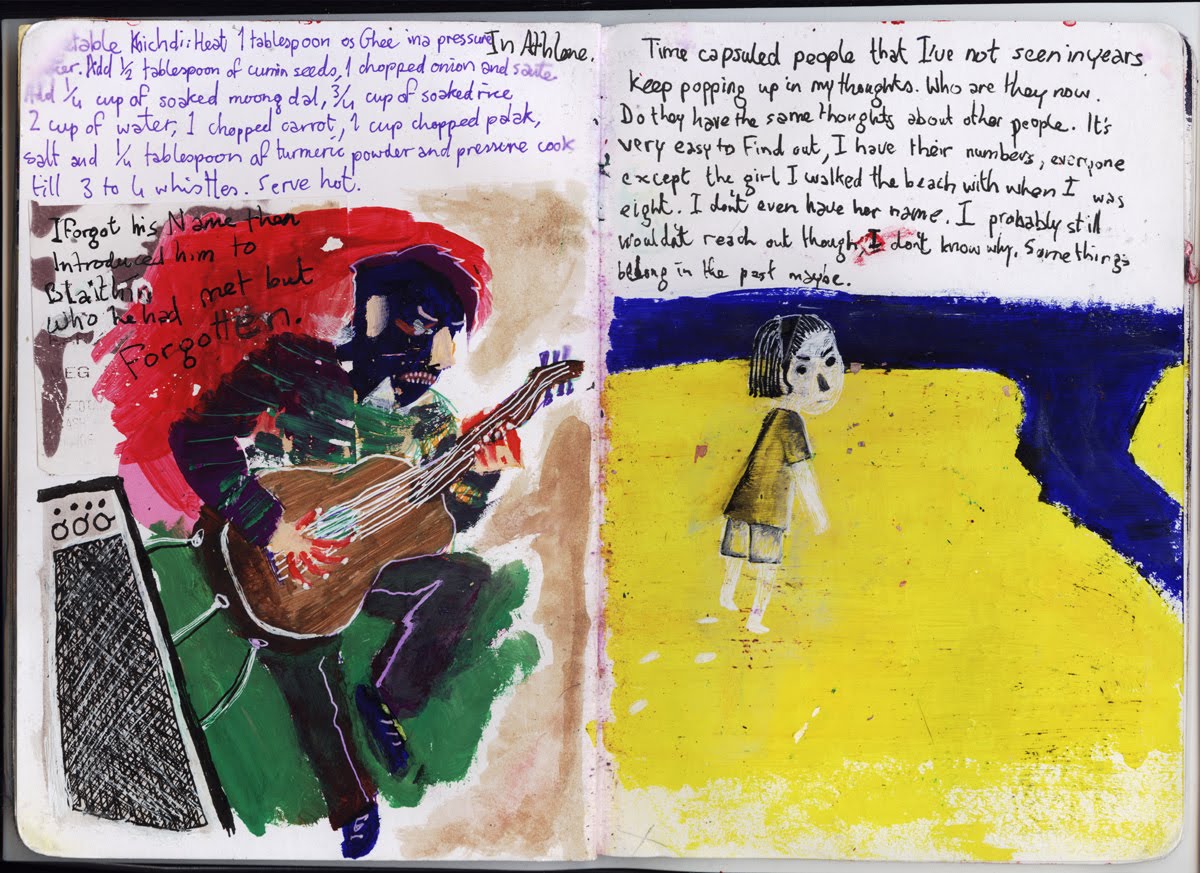 table Khichdi: Heat 1 tablespoon os Ghee in a pressure
In Athlone.
er. Add 1/2 tablespoon of cumin seeds, 1 chopped onion and saute
Add 1/4 cup of soaked moong dal, 3/4 cup of soaked rice
2 cup of water, 1 chopped carrot, 1 cup chopped palak,
salt and 1/4 tablespoon of turmeric powder and pressure cook
till 3 to 4 whistles. Serve hot.
I forgot his Name then
Introduced him to
Blaithin
who he had met but
Forgotten.
EG
Time capsuled people that I've not seen in years
keep popping up in my thoughts. Who are they now.
Do they have the same thoughts about other people. It's
very easy to find out, I have their numbers, everyone
except the girl I walked the beach with when I was
eight. I don't even have her name. I probably still
wouldn't reach out though, I don't know why. Some things
belong in the past maybe.